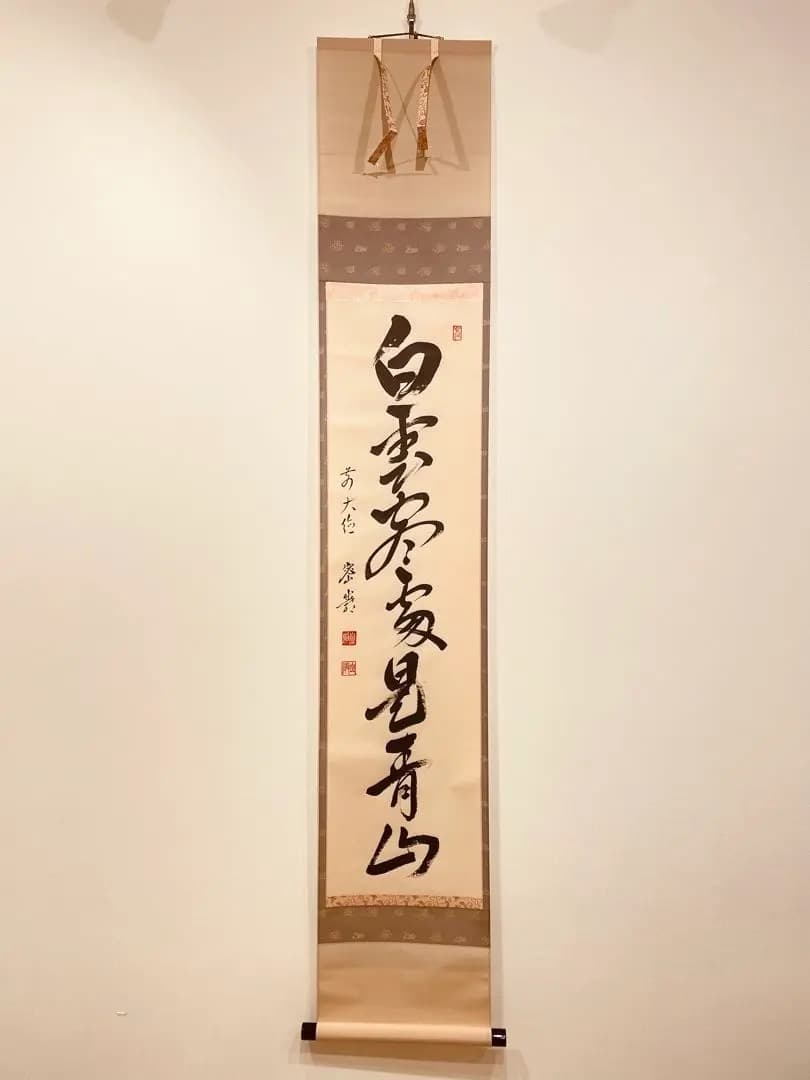 白雲尽處是青山
前大徳